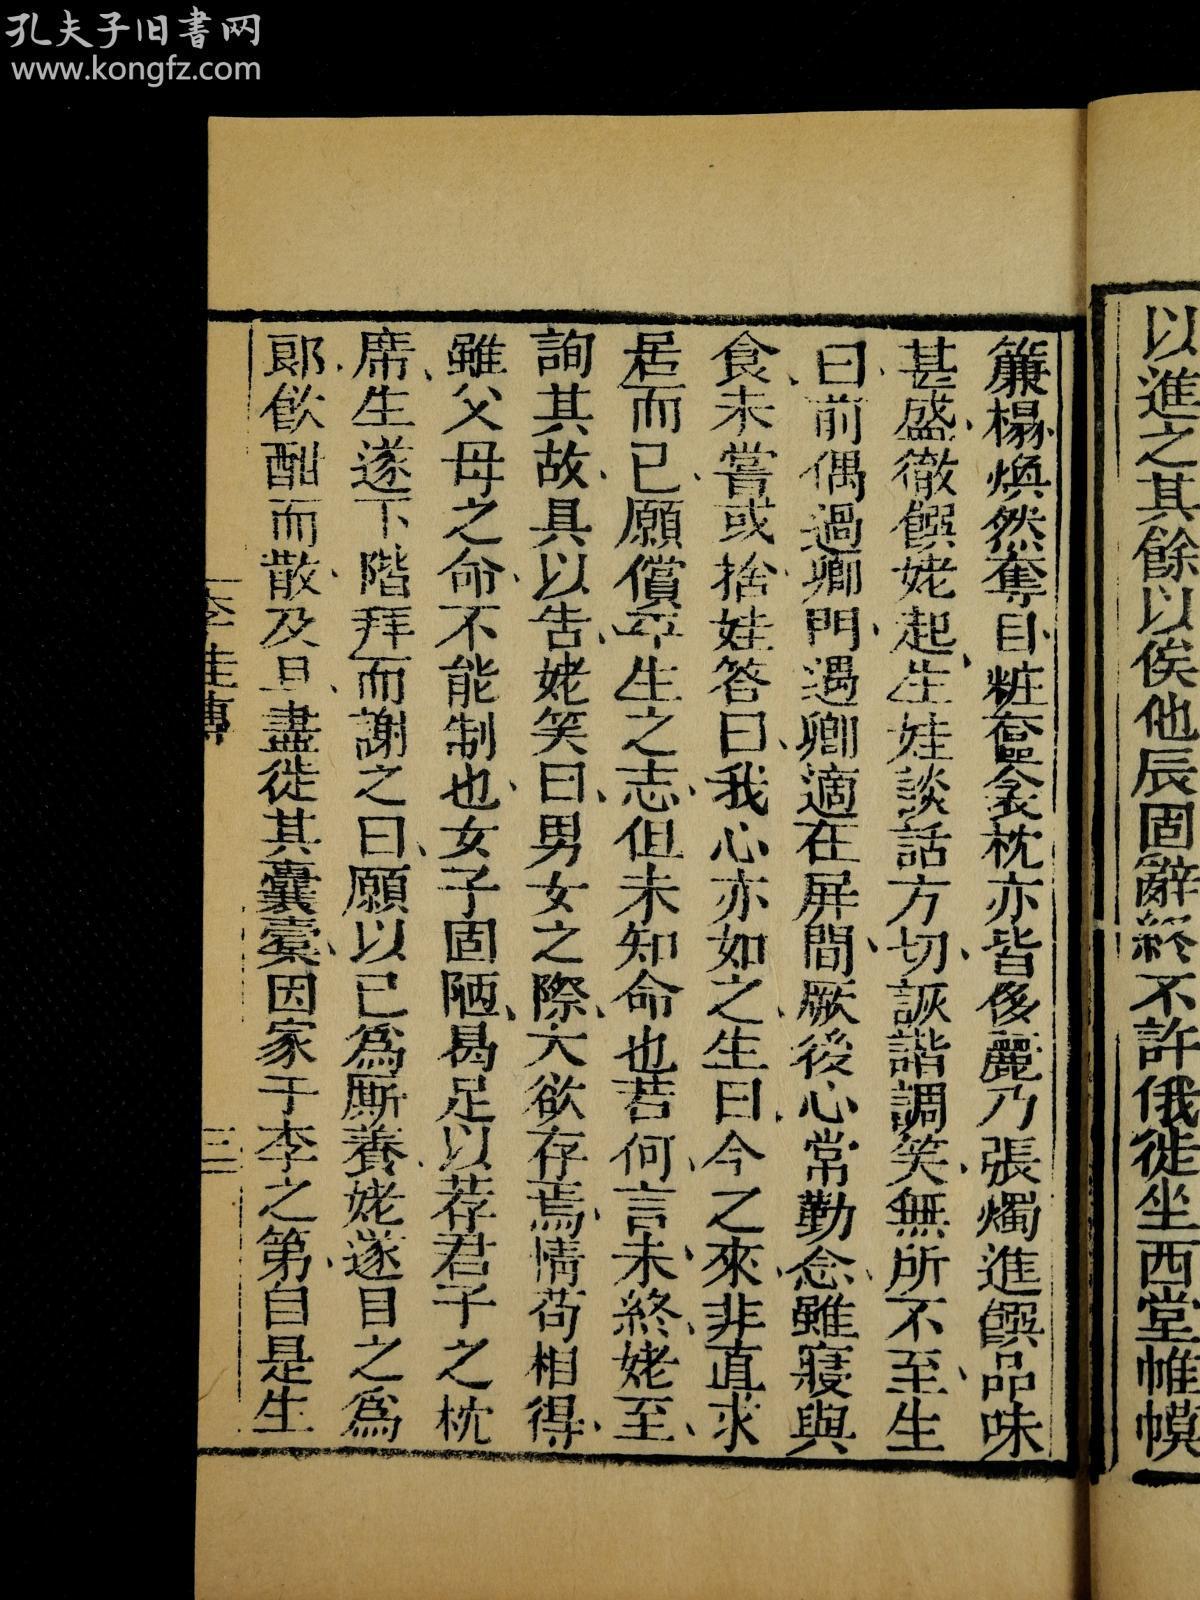 孔夫子旧書网
www.kongfz.com
以進之其餘以俟他辰固辭終不許俄徙坐西堂帷幙
簾榻煥然奪目粧奩衾枕亦皆侈麗乃張燭進饌品味
甚盛徹饌姥起生娃談話方切詼諧調笑無所不至生
曰前偶過卿門遇卿適在屏間厥後心常勤念雖寢與
食未嘗或捨娃答曰我心亦如之生曰今之來非直求
居而已願償平生之志但未知命也若何言未終姥至
詢其故具以告姥笑曰男女之際大欲存焉情苟相得
雖父母之命不能制也女子固陋曷足以荐君子之枕
席生遂下階拜而謝之曰願以己爲厮養姥遂目之爲
郎飲酣而散及旦盡徙其囊橐因家于李之第自是生
李娃傳
三